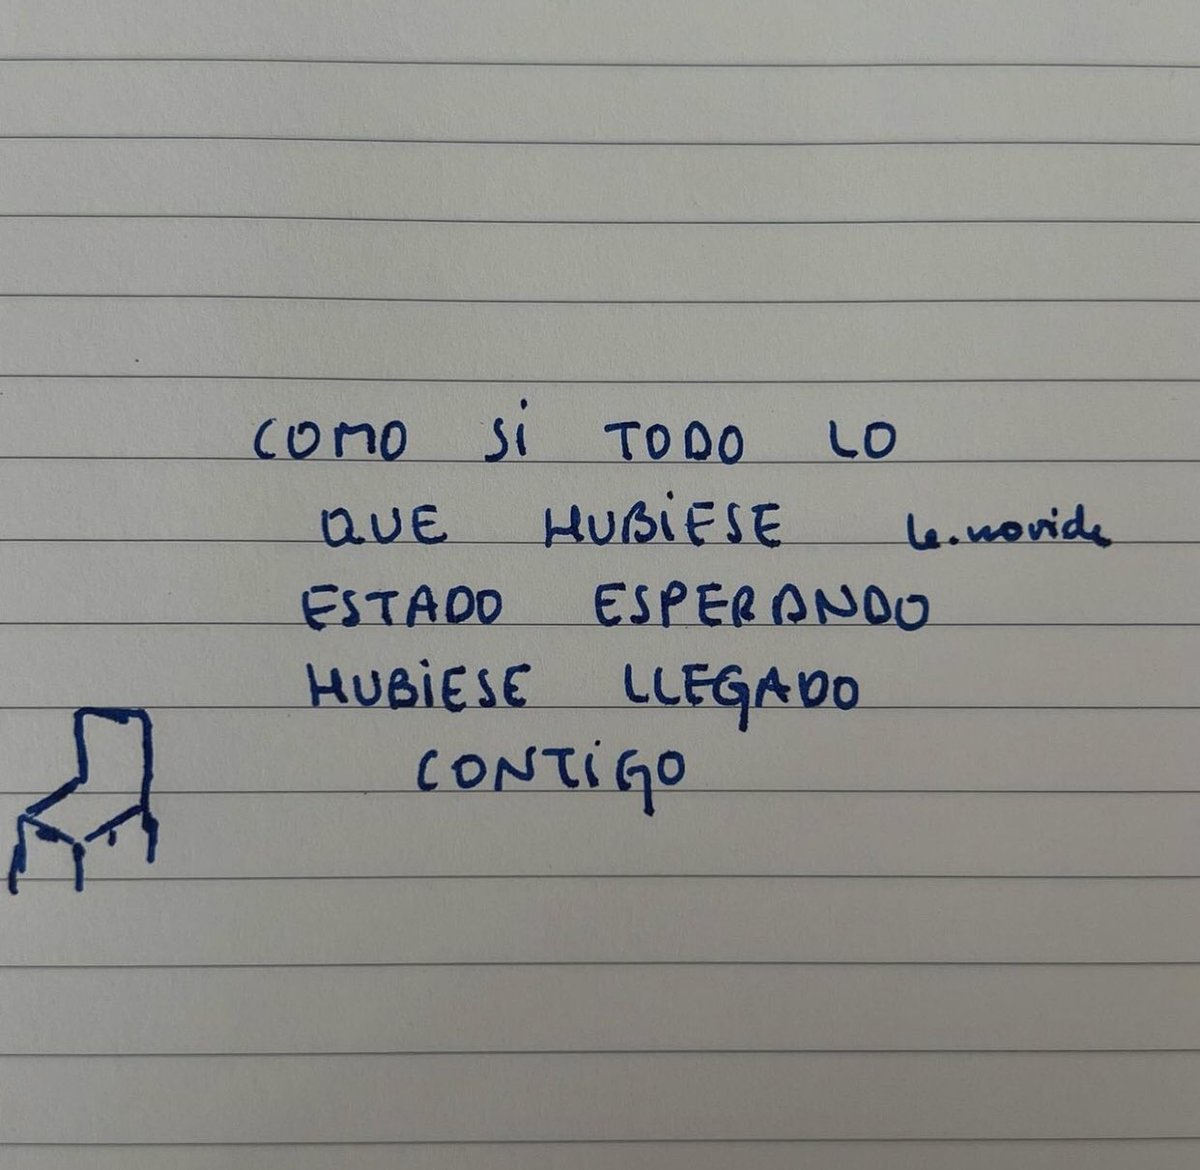 COMO Si TODO LO
QUE HUBiESE le.novide
ESTADO ESPERANDO
HUBiESE LLEGADO
CONTiGO